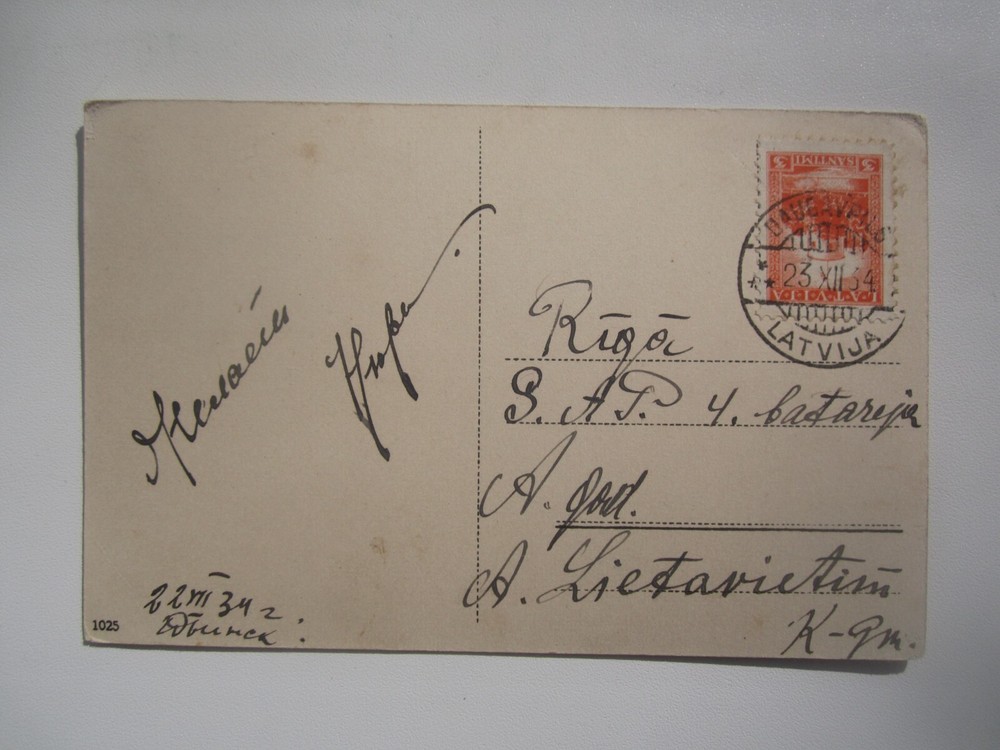 22 XII 34 г.
Двинск.
1025
3 SANTIMI 3
LATVIJA
DAUGAVPILS
23 XII 34
LATVIJA
Rīgā
S. A. P. 4. batareju
A. god.
A. Lietavietim
K-gm.